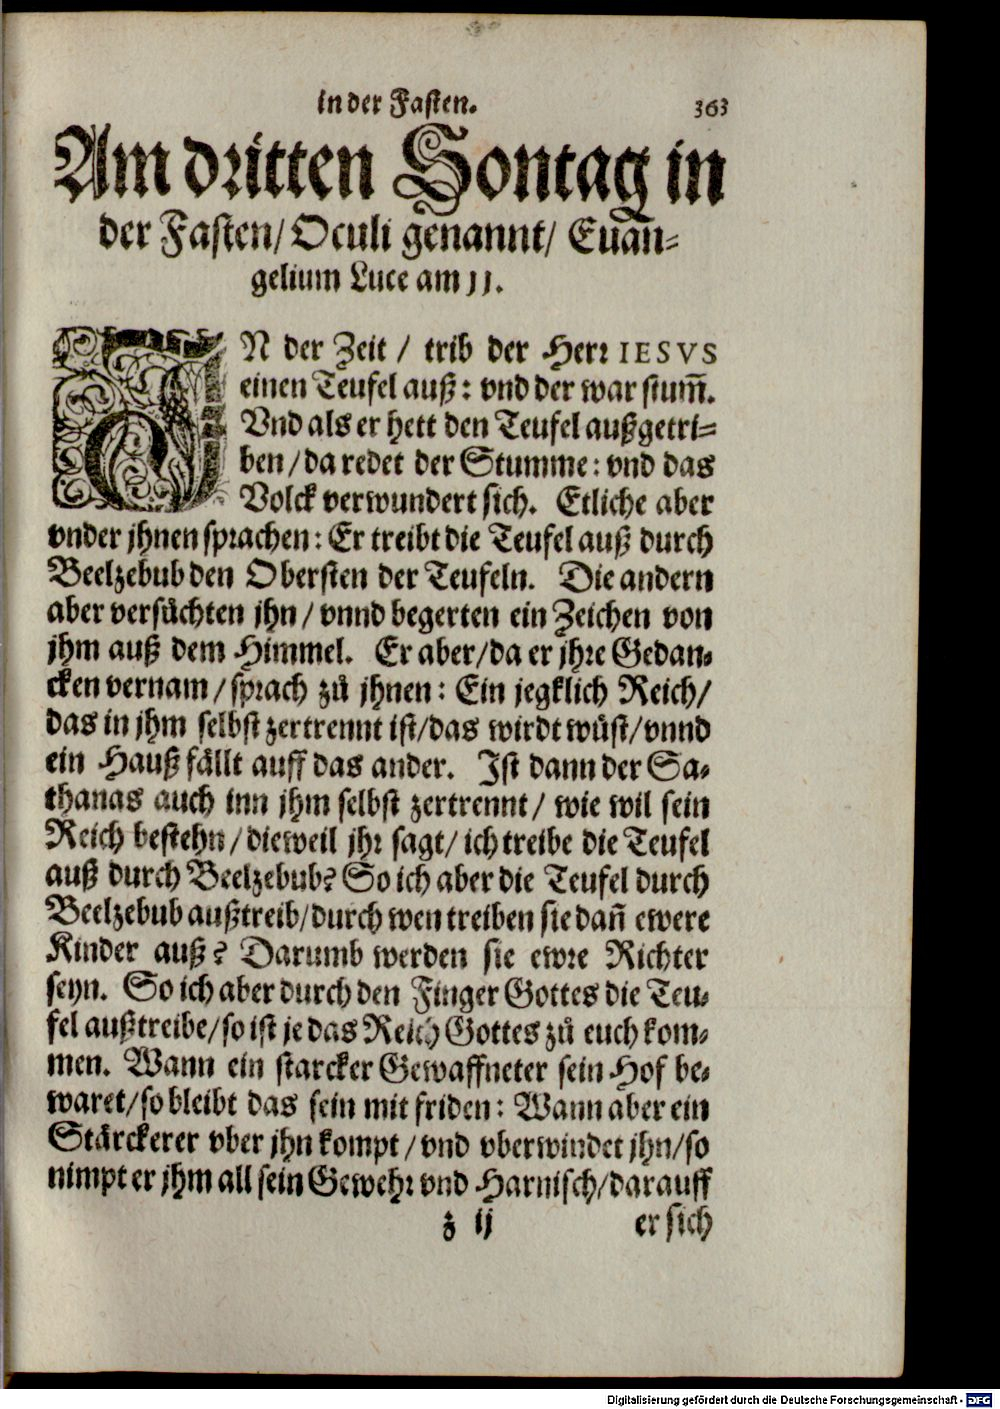 in der Fasten. 363
Am dritten Sontag in
der Fasten/ Oculi genannt/ Euan-
gelium Luce am 11.
IN der Zeit / trib der Herr IESVS
einen Teufel auß: vnd der war stum̃.
Vnd als er hett den Teufel außgetri-
ben/da redet der Stumme: vnd das
Volck verwundert sich. Etliche aber
vnder jhnen sprachen: Er treibt die Teufel auß durch
Beelzebub den Obersten der Teufeln. Die andern
aber versůchten jhn/ vnnd begerten ein Zeichen von
jhm auß dem Himmel. Er aber/da er jhre Gedan-
cken vernam/sprach zů jhnen: Ein jegklich Reich/
das in jhm selbst zertrennt ist/das wirdt wůst/vnnd
ein Hauß fällt auff das ander. Ist dann der Sa-
thanas auch inn jhm selbst zertrennt/ wie wil sein
Reich bestehn/dieweil jhr sagt/ ich treibe die Teufel
auß durch Beelzebub? So ich aber die Teufel durch
Beelzebub außtreib/durch wen treiben sie dañ ewere
Kinder auß? Darumb werden sie ewre Richter
seyn. So ich aber durch den Finger Gottes die Teu-
fel außtreibe/so ist je das Reich Gottes zů euch kom-
men. Wann ein starcker Gewaffneter sein Hof be-
waret/so bleibt das sein mit friden: Wann aber ein
Stärckerer vber jhn kompt/vnd vberwindet jhn/so
nimpt er jhm all sein Gewehr vnd Harnisch/darauff
z ij er sich
Digitalisierung gefördert durch die Deutsche Forschungsgemeinschaft - DFG